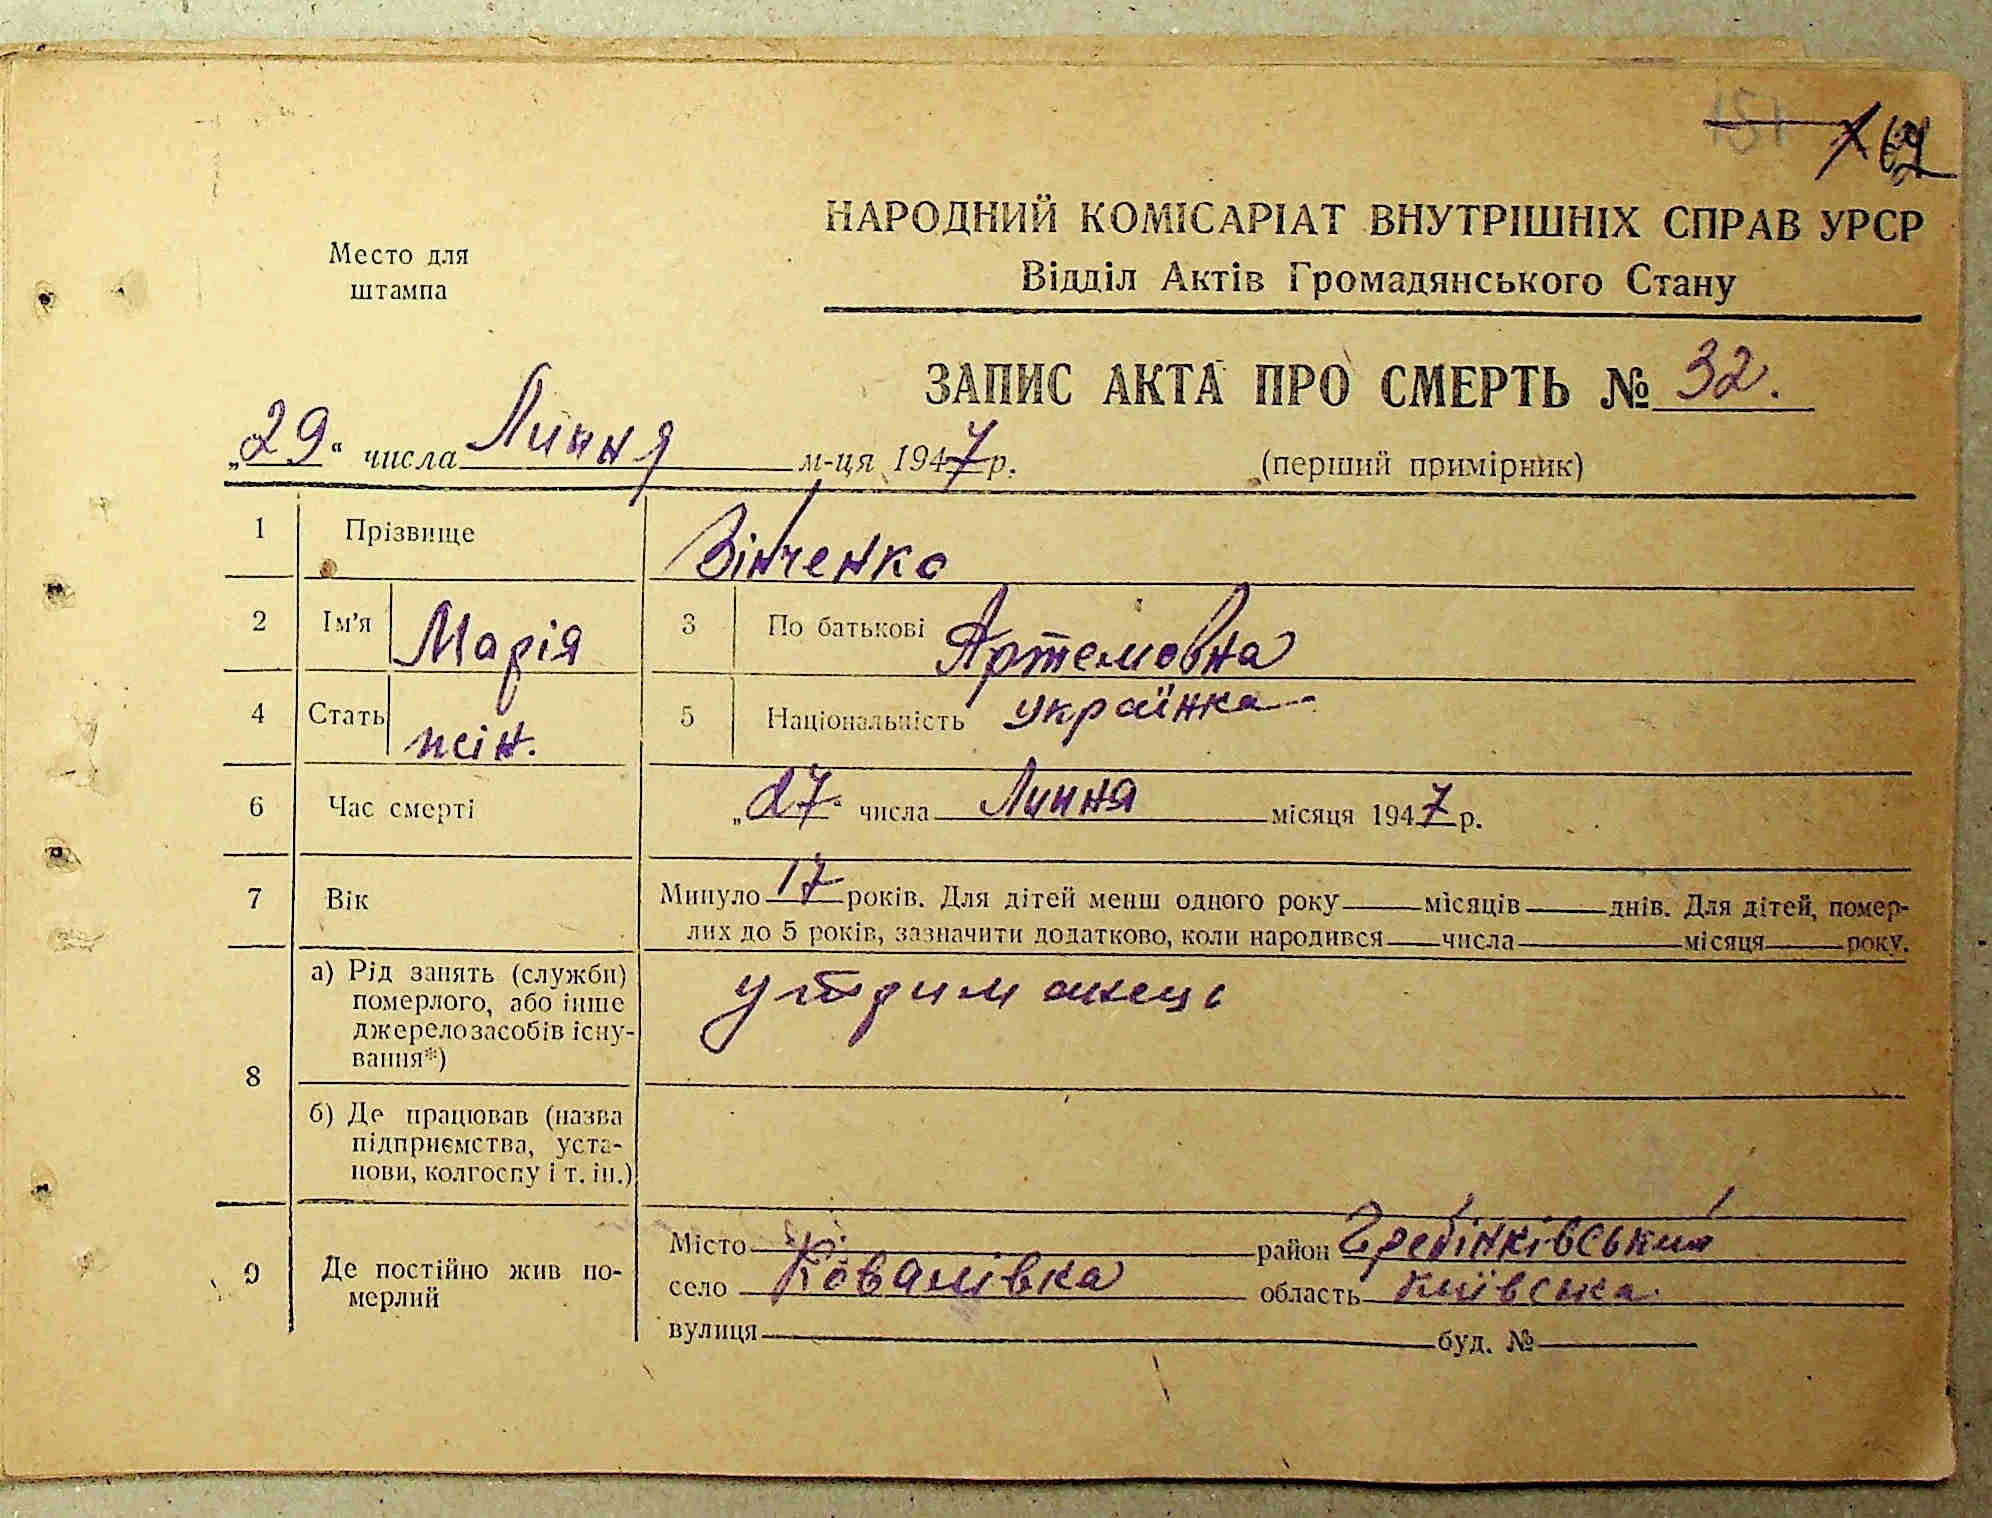 151
НАРОДНИЙ КОМІСАРІАТ ВНУТРІШНІХ СПРАВ УРСР
Відділ Актів Громадянського Стану
Место для
штампа
ЗАПИС АКТА ПРО СМЕРТЬ № 32.
„29“ числа Липня м-ця 1947 р. (перший примірник)
1 Прізвище Зінченко
2 Ім'я Марія 3 По батькові Артемовна
4 Стать жін. 5 Національність українка
6 Час смерті „27“ числа Липня місяця 1947 р.
7 Вік Минуло 17 років. Для дітей менш одного року місяців днів. Для дітей, помер-
лих до 5 років, зазначити додатково, коли народився числа місяця року.
8 а) Рід занять (служби) утриманець
померлого, або інше
джерело засобів існу-
вання*)
б) Де працював (назва
підприємства, уста-
нови, колгоспу і т. ін.)
9 Де постійно жив по-
мерлий
Місто район Гребінківський
село Ковалівка область київська
вулиця буд. №